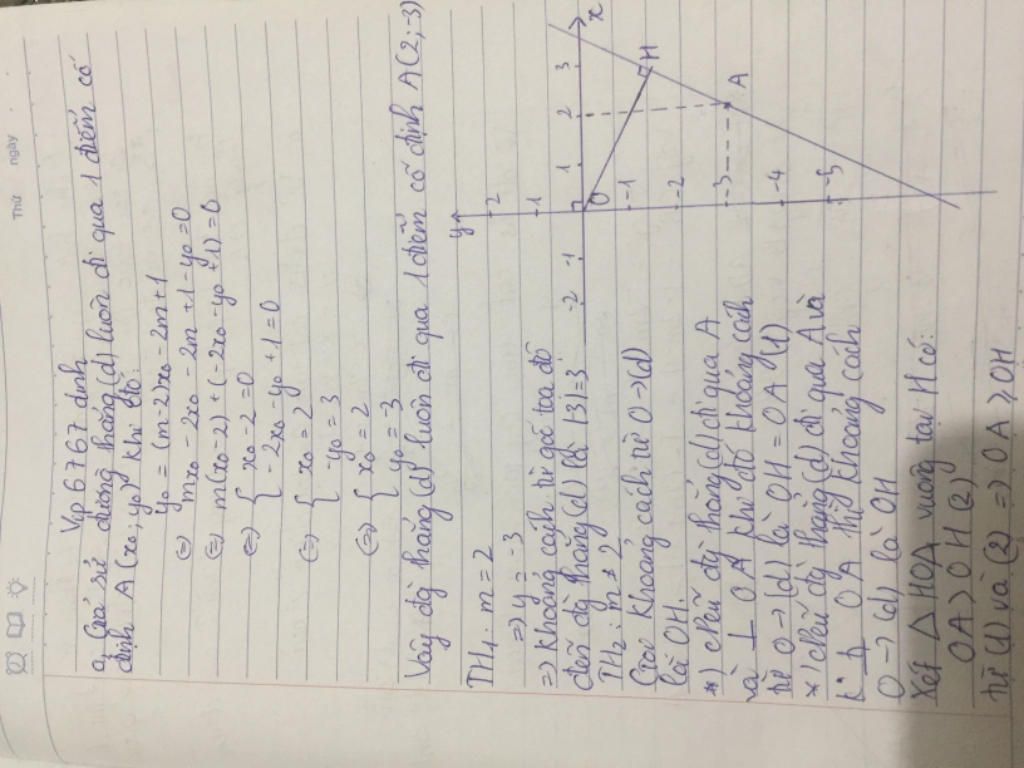 Thứ ngày
Vip 6767 dinh
a, Giả sử đường thẳng (d) luôn đi qua 1 điểm cố
định A (x₀; y₀) khi đó:
y₀ = (m-2)x₀ - 2m + 1
(=) mx₀ - 2x₀ - 2m + 1 - y₀ = 0
(=) m(x₀ - 2) + (-2x₀ - y₀ + 1) = 0
(=) { x₀ - 2 = 0
- 2x₀ - y₀ + 1 = 0
(=) { x₀ = 2
-y₀ = 3
(=) { x₀ = 2
y₀ = -3
Vậy đg thẳng (d) luôn đi qua 1 điểm cố định A(2; -3)
TH₁: m = 2
=> y = -3
=> Khoảng cách từ gốc toạ độ
đến đg thẳng (d) là |3| = 3
TH₂: m ≠ 2
Gọi khoảng cách từ O -> (d)
là OH.
*) Nếu đg thẳng (d) đi qua A
và ⊥ OA khi đó khoảng cách
từ O -> (d) là OH = OA (1)
*) Nếu đg thẳng (d) đi qua A và
k° ⊥ OA thì khoảng cách
O -> (d) là OH
Xét Δ HOA vuông tại H có:
OA > OH (2)
từ (1) và (2) => OA ≥ OH
y
2
1
-2 -1 O 1 2 3 x
-1
-2
-3
-4
-5
H
A